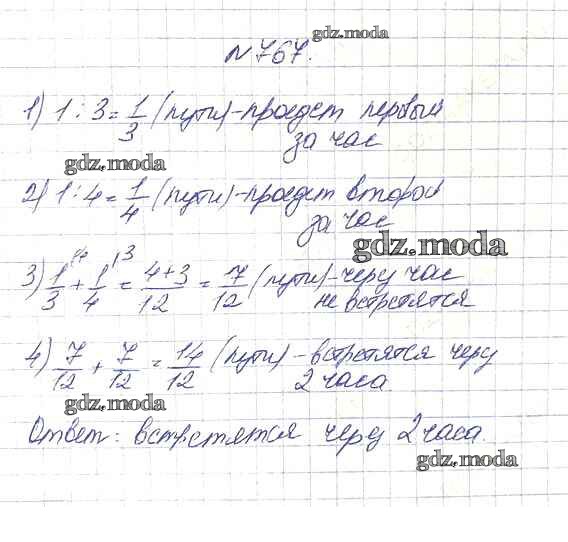 gdz.moda
N 767.
1) 1 : 3 = 1/3 (пути) - проедет первый
за час
gdz.moda
2) 1 : 4 = 1/4 (пути) - проедет второй
за час
gdz.moda
3) 1/3 + 1/4 = 4+3/12 = 7/12 (пути) - через час
не встретятся
4) 7/12 + 7/12 = 14/12 (пути) - встретятся через
2 часа
gdz.moda
Ответ: встретятся через 2 часа.
gdz.moda